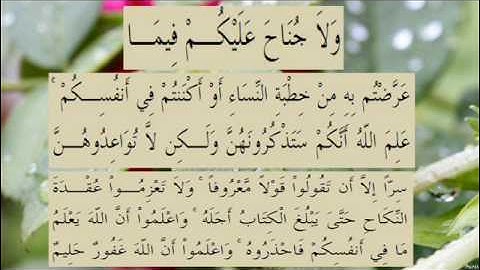 وَلاَ جُنَاحَ عَلَيْكُمْ فِيمَا
عَرَّضْتُم بِهِ مِنْ خِطْبَةِ النِّسَاءِ أَوْ أَكْنَنتُمْ فِي أَنفُسِكُمْ ۚ
عَلِمَ اللّهُ أَنَّكُمْ سَتَذْكُرُونَهُنَّ وَلَـكِن لاَّ تُوَاعِدُوهُنَّ
سِرّاً إِلاَّ أَن تَقُولُواْ قَوْلاً مَّعْرُوفاً ۚ وَلاَ تَعْزِمُواْ عُقْدَةَ
النِّكَاحِ حَتَّىَ يَبْلُغَ الْكِتَابُ أَجَلَهُ ۚ وَاعْلَمُواْ أَنَّ اللّهَ يَعْلَمُ
مَا فِي أَنفُسِكُمْ فَاحْذَرُوهُ ۚ وَاعْلَمُواْ أَنَّ اللّهَ غَفُورٌ حَلِيمٌ